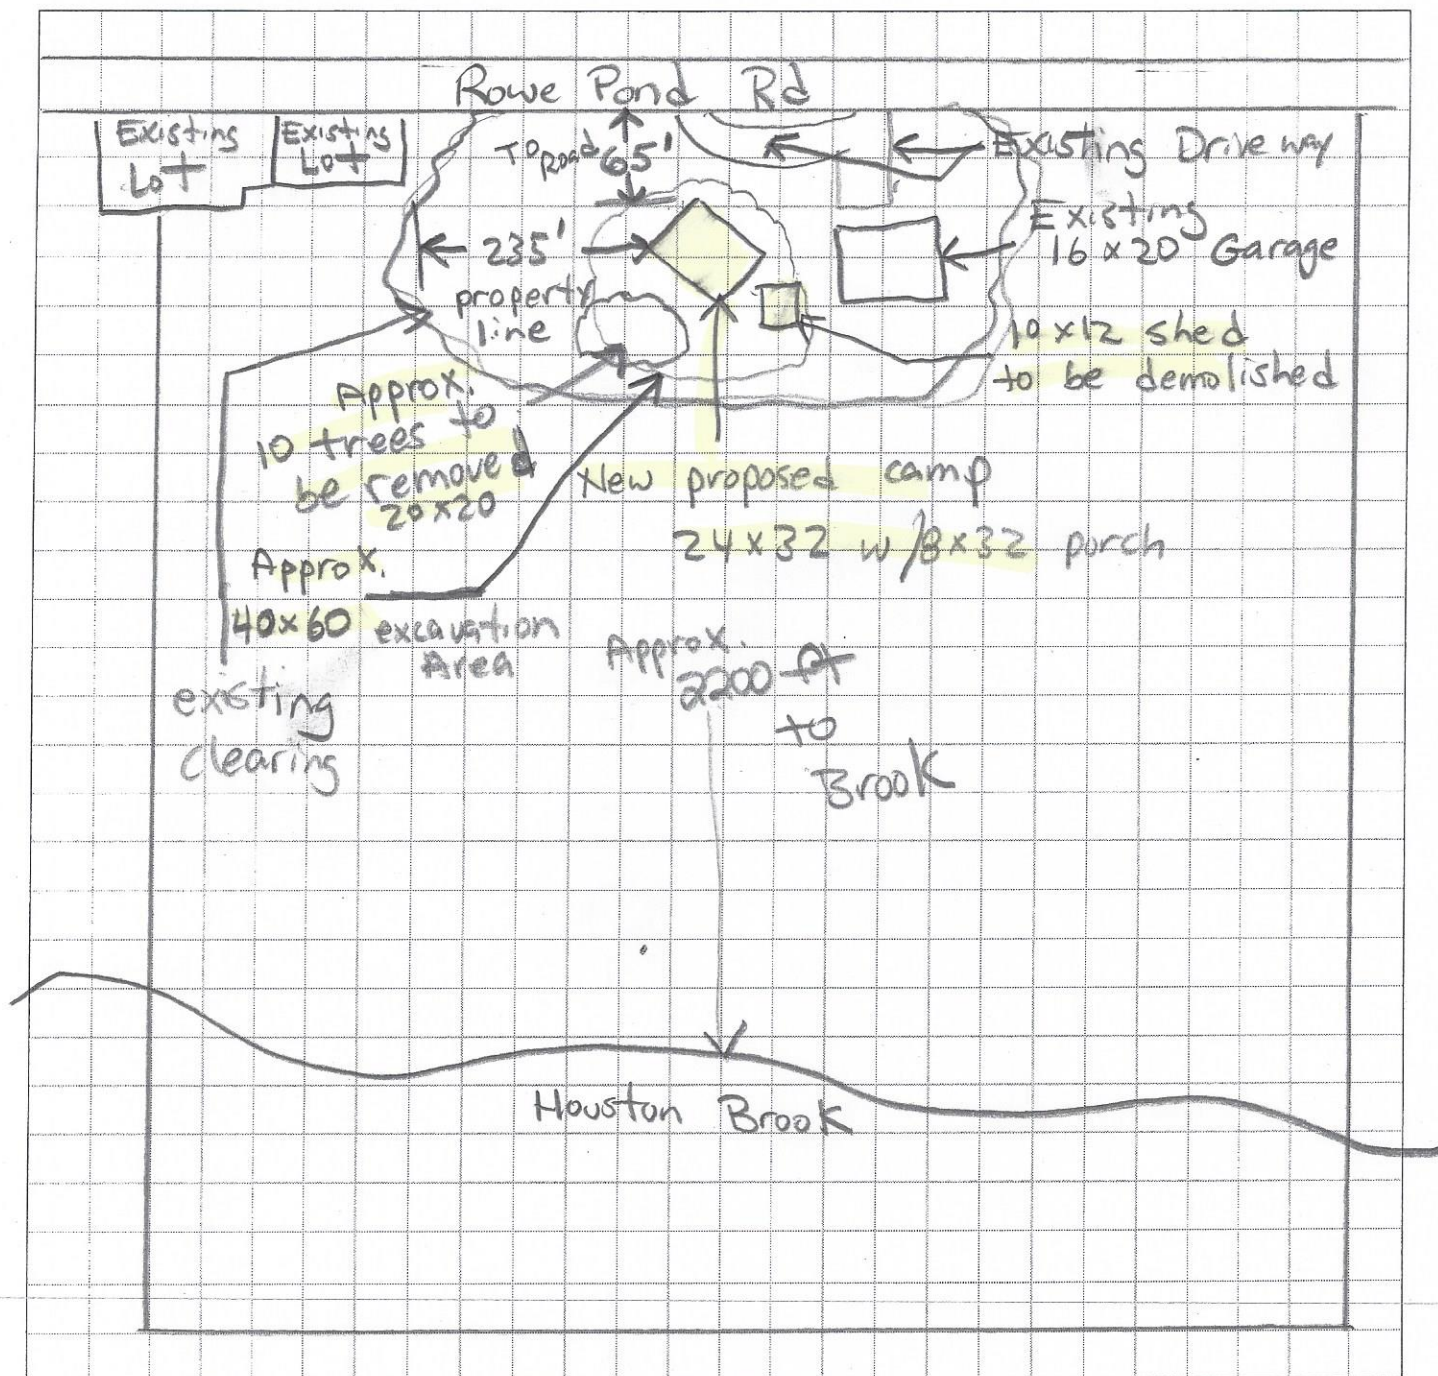 Rowe Pond Rd
Existing
Lot
Existing
Lot
To Road 65'
Existing Driveway
Existing
16 x 20 Garage
235'
property
line
10 x 12 shed
to be demolished
Approx.
10 trees to
be removed
20 x 20
New proposed camp
24 x 32 w/8 x 32 porch
Approx.
40 x 60 excavation
Area
existing
clearing
Approx.
2200 ft
to
Brook
Houston Brook